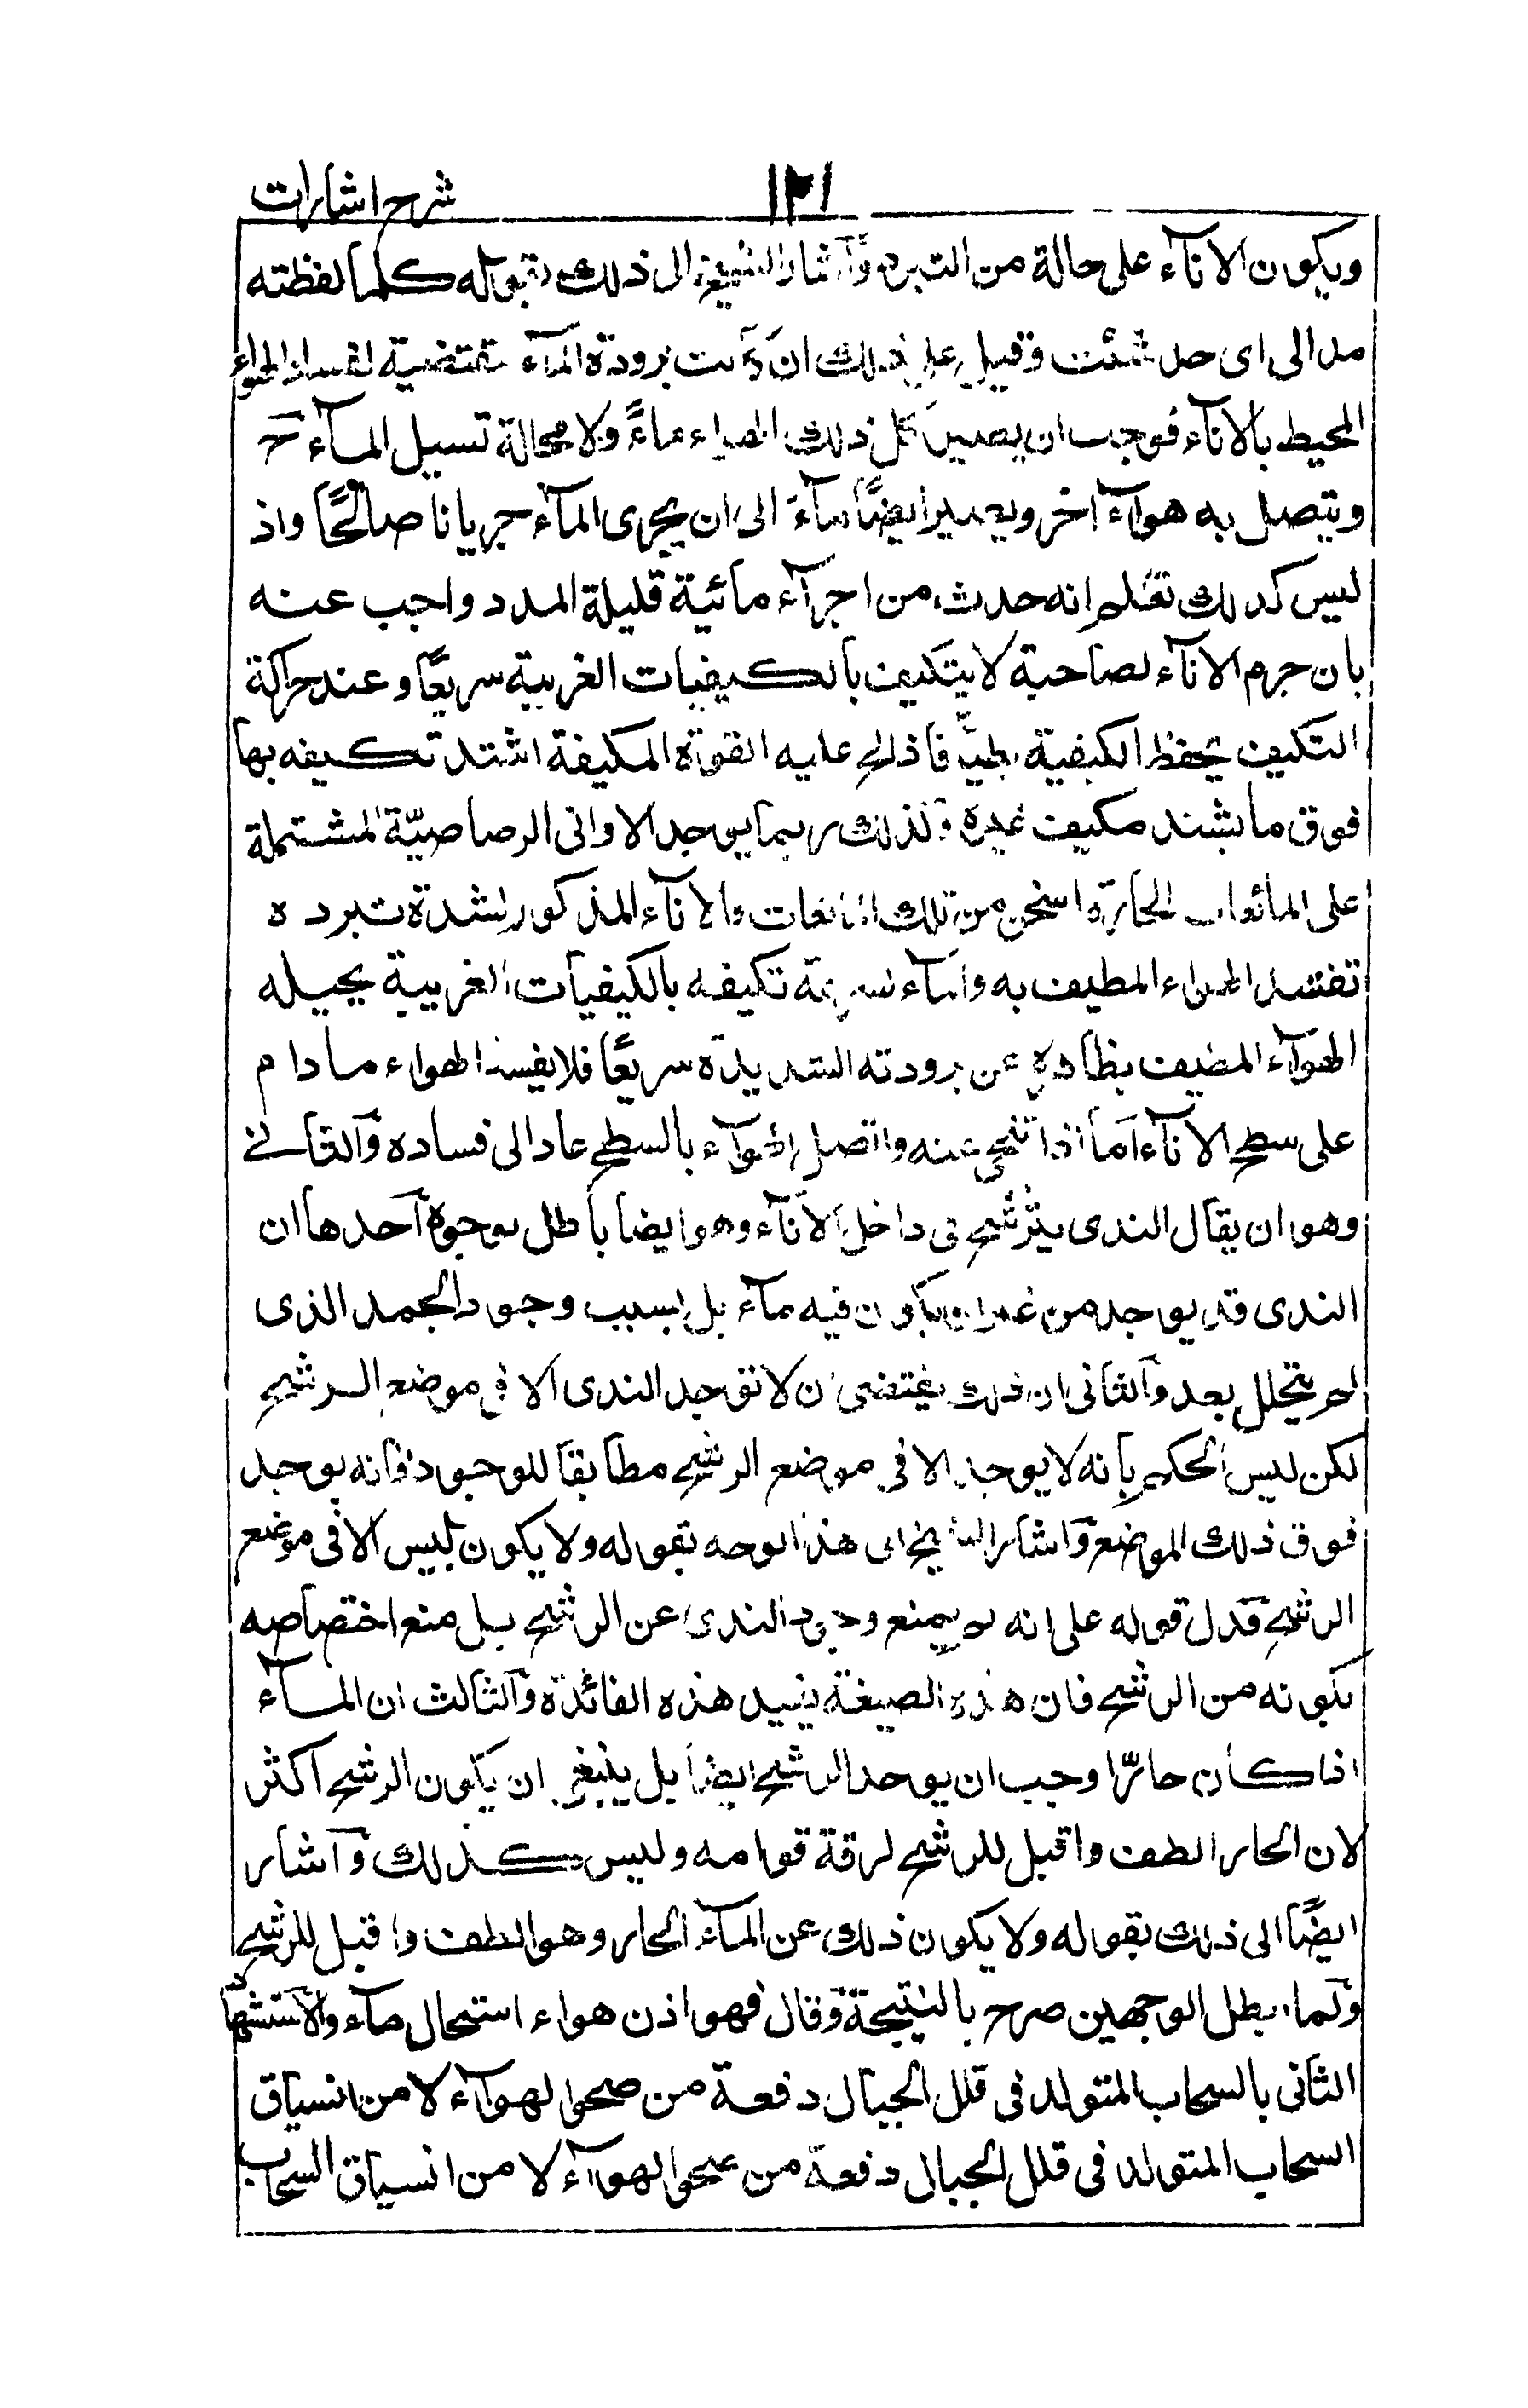 شرح اشارات ١٢١
ويكون الاناء على حالة من التبرد وآشار الشيخ الى ذلك بقوله كلما لفظته
مد الى اى حد شئت وقيل على ذلك ان كانت برودة المآء مقتضية لفساد الهواء
المحيط بالانآء فوجب ان يصير كل ذلك الهواء ماءً ولا محالة تسيل المآء ح
ويتصل به هوآء آخر ويصير ايضًا مآء الى ان يجرى المآء جريانا صالحًا واذ
ليس كذلك فعلم انه حدث من اجزآء مائية قليلة المدد واجب عنه
بان جرم الانآء لصلابته لا يتكيف بالكيفيات الغريبة سريعًا وعند
التكيف يحفظ الكيفية فاذا عليه القوة المكيفة اشتد تكيفه بها
فوق ما يشتد تكيف غيره ولذلك ربما يوجد الاوانى الرصاصيّة المشتملة
على المائعات الحارّة اسخن من تلك المائعات والانآء المذكور لشدة تبرده
تفسد الهواء المطيف به والمآء لسرعة تكيفه بالكيفيات الغريبة يحيله
الهوآء المطيف بظاهره عن برودته الشديدة سريعًا فلا يفسد الهواء ما دام
على سطح الانآء آما اذا تنحى عنه واتصل الهوآء بالسطح عاد الى فساده وآلثانى
وهو ان يقال الندى يترشح فى داخل الانآء وهو ايضا باطل بوجوه آحدها ان
الندى قد يوجد من غير ان يكون فيه مآء بل بسبب وجود الجمد الذى
لم يتحلل بعد وآلثانى ان ذلك يقتضى ان لا توجد الندى الا فى موضع الرشح
لكن ليس الحكم بانه لا يوجد الا فى موضع الرشح مطابقا للوجود فانه يوجد
فوق ذلك الموضع وآشار الشيخ الى هذا الوجه بقوله ولا يكون ليس الا فى موضع
الرشح فدل قوله على انه لم يمنع وجود الندى عن الرشح بل منع اختصاصه
بكونه من الرشح فان هذه الصيغة يفيد هذه الفائدة وآلثالث ان المآء
اذا كان حارّا وجب ان يوجد الرشح ايضا بل ينبغى ان يكون الرشح اكثر
لان الحار الطف واقبل للرشح لرقة قوامه وليس كذلك وآشار
ايضًا الى ذلك بقوله ولا يكون ذلك عن المآء الحار وهو الطف واقبل للرشح
ولما ابطل الوجهين صرح بالنتيجة وقال فهو اذن هواء استحال مآء والآستشهاد
الثانى بالسحاب المتولد فى قلل الجبال دفعة من صحو الهوآء لا من انسياق
السحاب المتولد فى قلل الجبال دفعة من صحو الهوآء لا من انسياق السحاب